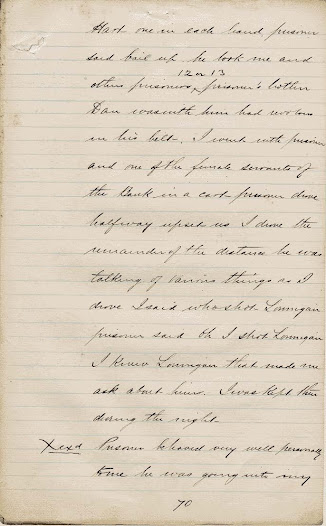 Hart one in each hand prisoner
said bail up he took me and
12 or 13
others prisoners, prisoner's brother
Dan was with him had revolvers
in his belt. I went with prisoner
and one of the female servants of
the Bank in a cart prisoner drove
halfway upset us I drove the
remainder of the distance he was
talking of various things as I
drove I said who shot Lonnigan
prisoner said Oh I shot Lonnigan
I knew Lonnigan that made me
ask about him. I was kept there
during the night
Xexd Prisoner behaved very well personally
to me he was going into my
70